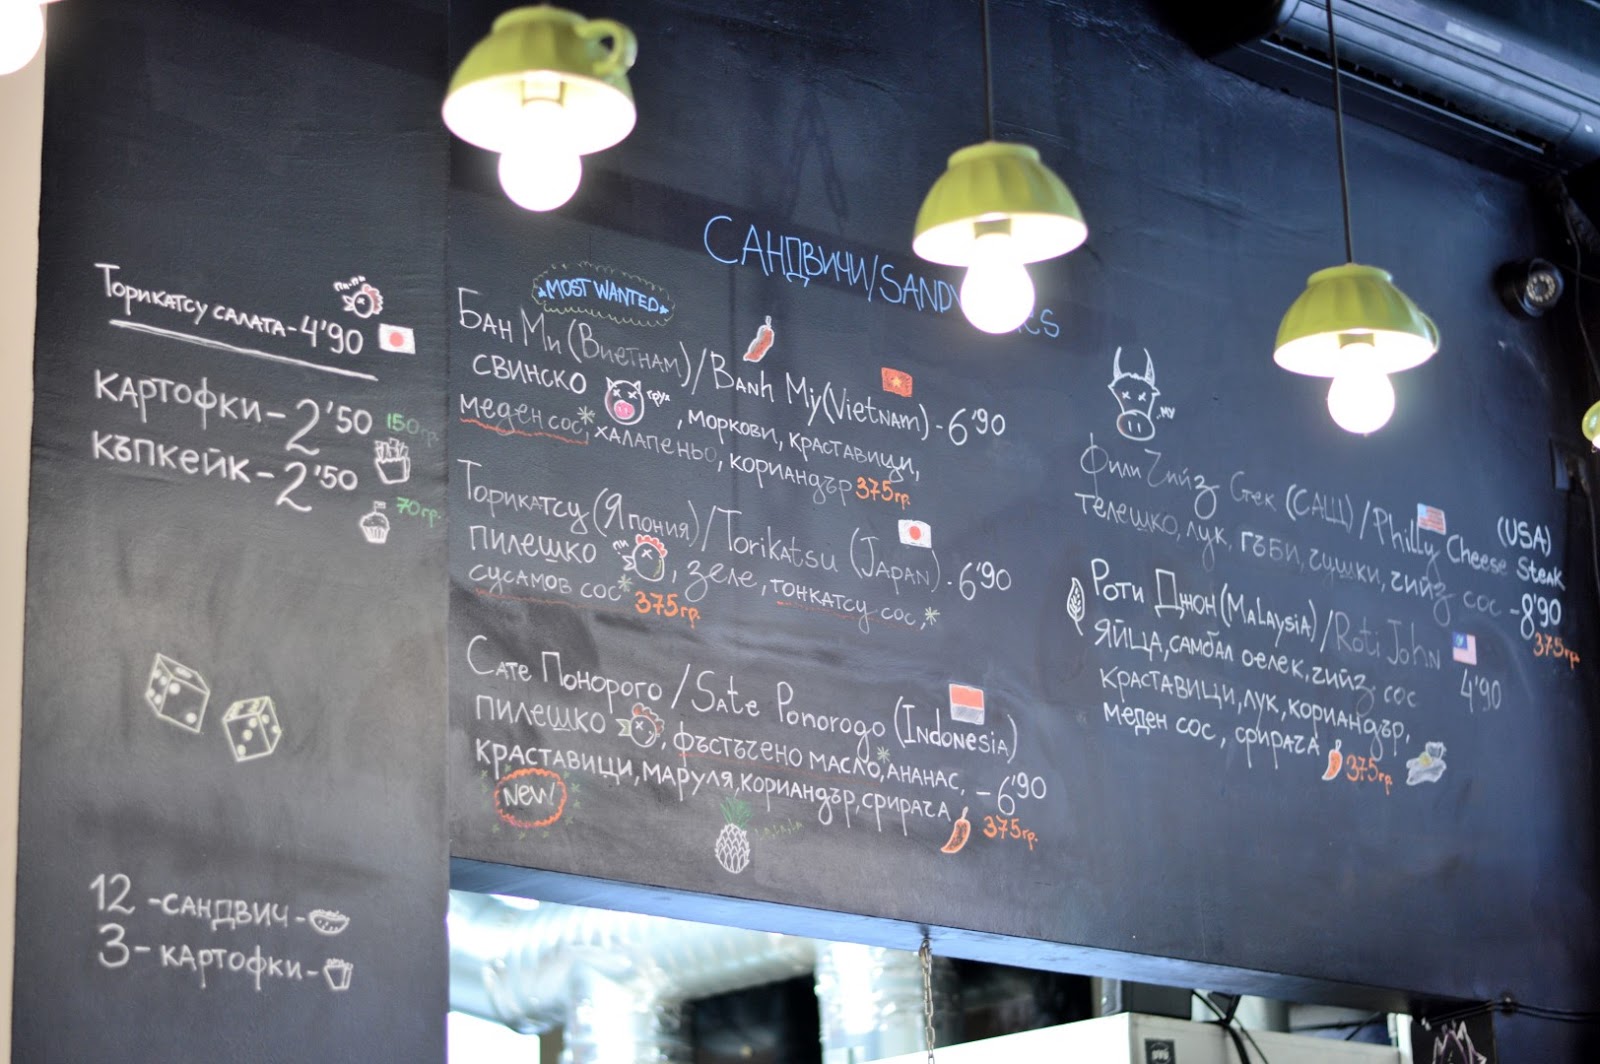 Торикатсу салата - 4'90
Картофки - 2'50 150гр.
Къпкейк - 2'50
70гр.
12 - сандвич -
3 - картофки -
Сандвичи/
MOST WANTED
Бан Ми (Виетнам)/Banh My(Vietnam) - 6'90
свинско грух, моркови, краставици,
меден сос*, халапеньо, кориандър 375гр.
Торикатсу (Япония)/Torikatsu (Japan) - 6'90
пилешко пи, зеле, тонкатсу сос,*
сусамов сос* 375гр.
Сате Понорого /Sate Ponorogo (Indonesia)
пилешко , фъстъчено масло*, ананас, - 6'90
краставици, маруля, кориандър, срирача
New! 375гр.
му
Фили Чийз Стек (САЩ) /Philly Cheese Steak (USA)
телешко, лук, гъби, чушки, чийз сос - 8'90
375гр.
Роти Джон (Malaysia) /Roti John
яйца, самбал оелек, чийз сос 4'90
краставици, лук, кориандър,
меден сос, срирача 375гр.